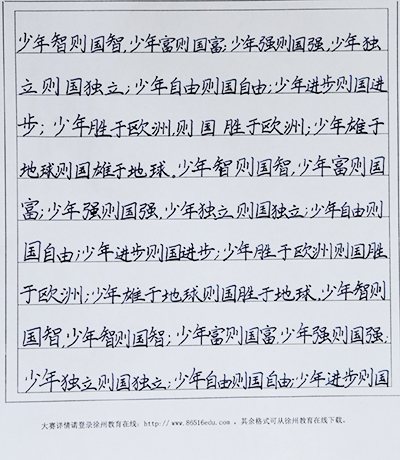 少年智则国智,少年富则国富;少年强则国强,少年独
立则国独立;少年自由则国自由;少年进步则国进
步;少年胜于欧洲,则国胜于欧洲;少年雄于
地球则国雄于地球.少年智则国智,少年富则国
富;少年强则国强.少年独立则国独立;少年自由则
国自由;少年进步则国进步;少年胜于欧洲则国胜
于欧洲;少年雄于地球则国胜于地球.少年智则
国智,少年智则国智;少年富则国富,少年强则国强;
少年独立则国独立;少年自由则国自由;少年进步则国
大赛详情请登录徐州教育在线:http://www.86516edu.com。其余格式可从徐州教育在线下载。